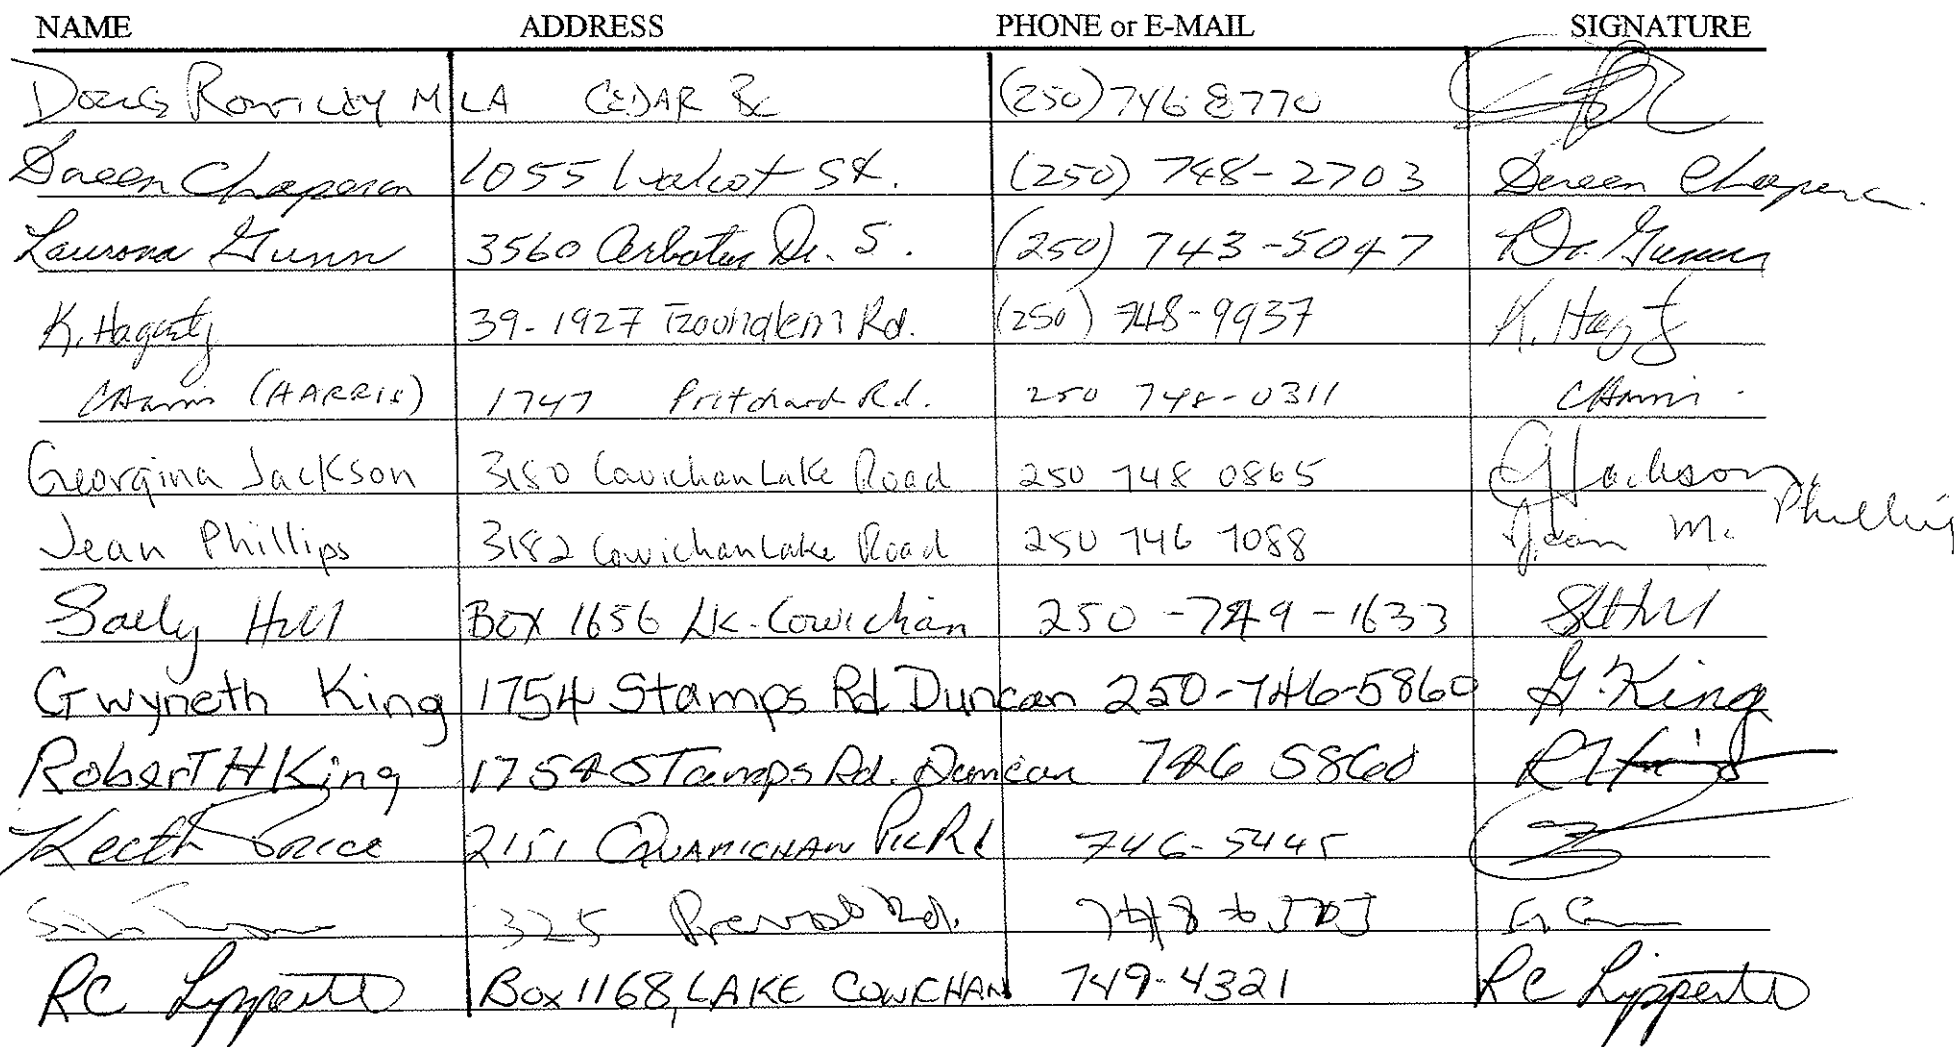 NAME ADDRESS PHONE or E-MAIL SIGNATURE
Doug MLA CEDAR BC (250) 746 8770
Doreen Chapman 1055 St. (250) 748-2703 Doreen Chapman
Gunn 3560 Arbutus Dr. S. (250) 743-5047 Gunn
K. Hagarty 39-1927 Rd. (250) 748-9937 K. Hagarty
(HARRIS) 1747 Pritchard Rd. 250 748-0311
Georgina Jackson 3180 Cowichan Lake Road 250 748 0865 G Jackson
Jean Phillips 3182 Cowichan Lake Road 250 746 7088 Jean M. Phillips
Sally Hill Box 1656 Lk. Cowichan 250-749-1633 Hill
Gwyneth King 1754 Stamps Rd Duncan 250-746-5860 G. King
Robert H King 1754 Stamps Rd. Duncan 746 5860
Keith Price 2151 QUAMICHAN Rd 746-5445
325 Rd.
RC Box 1168, LAKE COWICHAN 749-4321 RC